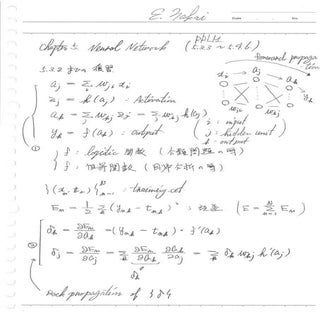 E. Nakai
PRLM
Chapter 5. Neural Network (5.3.3 ~ 5.4.6)
5.3.2 までの復習
Forward propagation
a_j = Σ_i w_ji x_i
z_j = h(a_j) : Activation
a_k = Σ_j w_kj z_j = Σ_j w_kj h(a_j)
y_k = f(a_k) : output
x_i a_j a_k
i : input
j : hidden unit
k : output
①
f : logistic 関数 (分類問題の時)
f : 恒等関数 (回帰分析の時)
{(x_n, t_n)}_{n=1}^N : training set
E_n = 1/2 Σ_k (y_nk − t_nk)² : 誤差 (E = Σ_{n=1}^N E_n)
②
δ_k = ∂E_n/∂a_k = (y_nk − t_nk) · f'(a_k)
δ_j = ∂E_n/∂a_j = Σ_k ∂E_n/∂a_k ∂a_k/∂a_j = Σ_k δ_k w_kj h'(a_j)
δ_k
Back propagation of